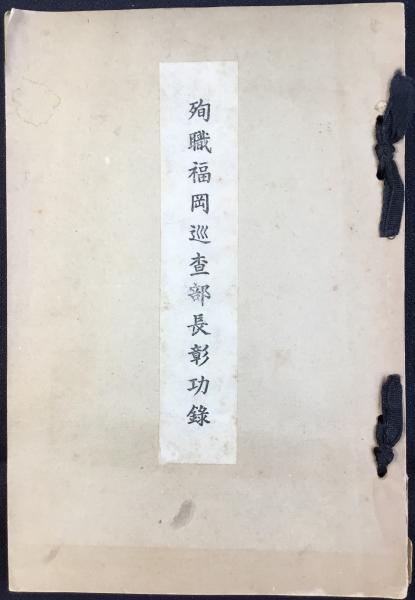 殉職福岡巡査部長彰功錄